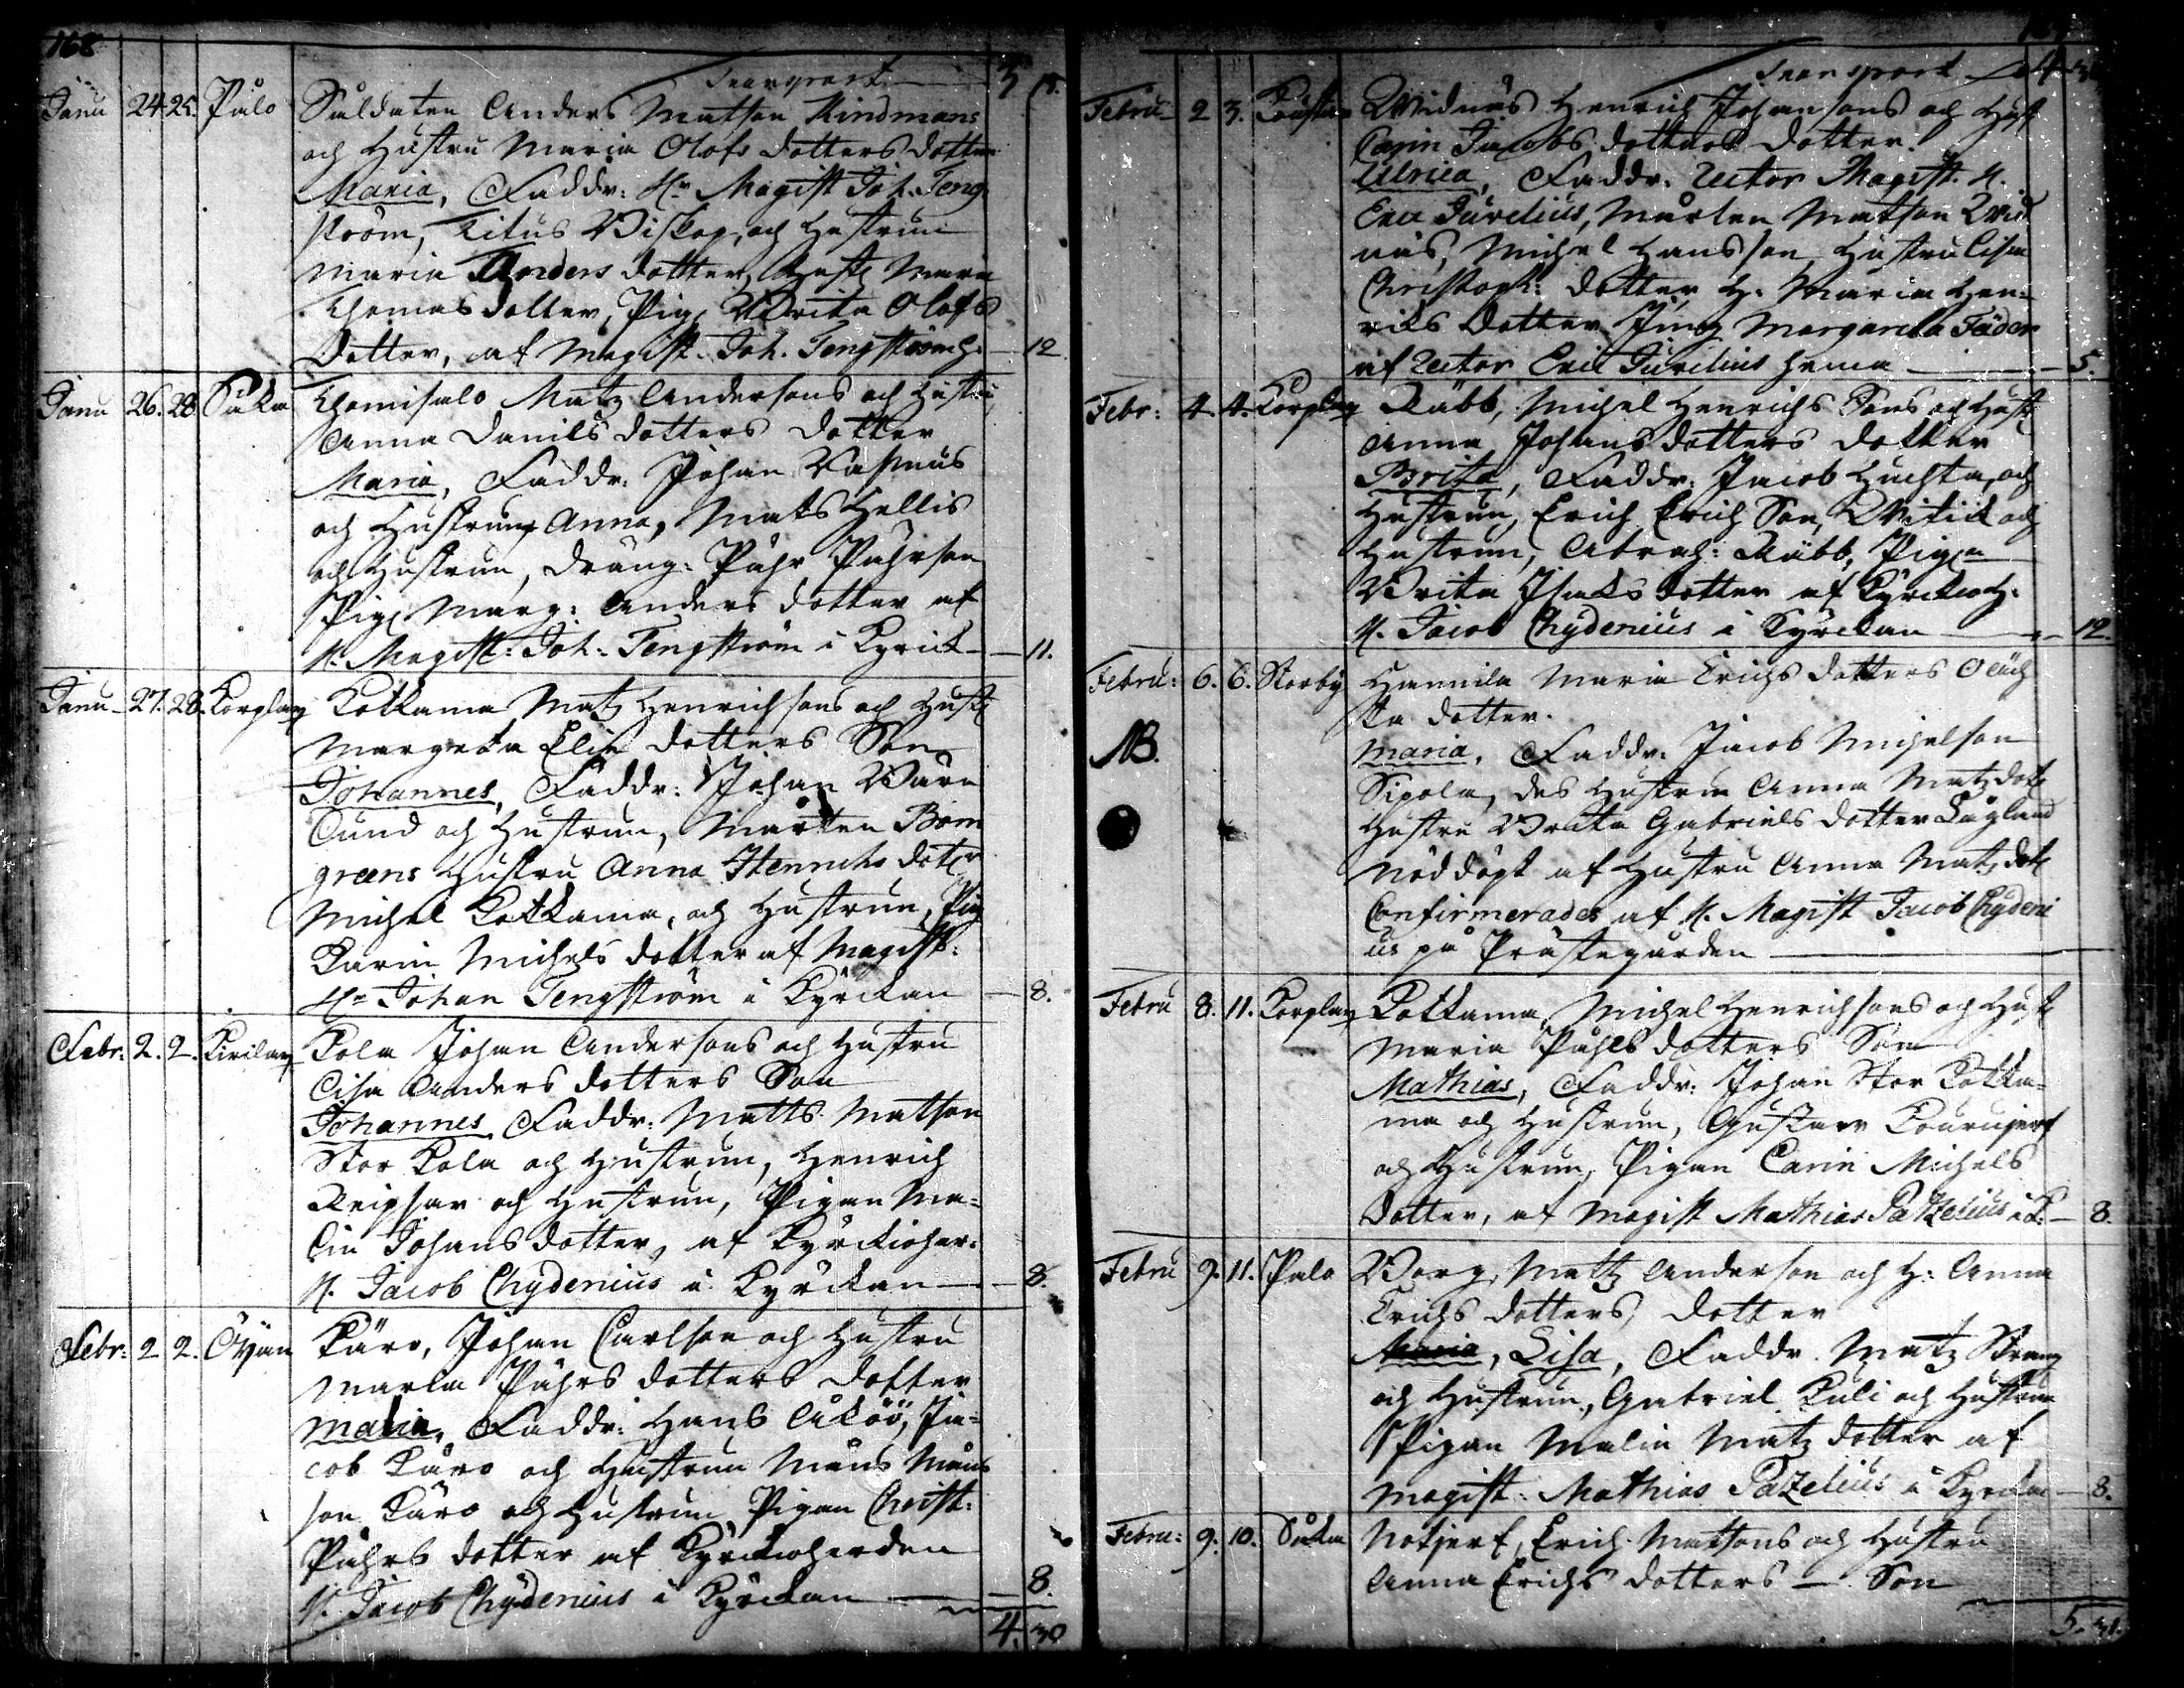 168
Transport 3 15.
Janu 24 25. Pålo Såldaten Anders Matson Kindmans
och Hustru Maria Olofs dotters dotter
Maria, Faddr: Hr Magist Joh. Teng-
ström, Titus Biskop, och Hustrun
Maria Anders dotter, Hust. Maria
Thomas dotter, Pig. Brita Olofs
Dotter, af Magist. Joh. Tengström h. — 12
Janu 26. 28. Såka Thomisalo Matz Andersons och Hustru
Anna Danils dotters dotter
Maria, Faddr: Johan
och Hustrun Anna, Mats Hellis
och Hustrun, dräng: Påhr Påhrson
Pig. Marg: Anders dotter af
H. Magist: Joh. Tengström i Kyrck — 11.
Janu 27. 28. Korplax Kotkama Matz Henrichsons och Hust
Margeta Elie dotters Son
Johannes, Faddr: Johan
och Hustrun, Mårten Bom
greens Hustru Anna Henrichs dotr
Michel Kotkama, och Hustrun, Pig
Karin Michels dotter af Magist:
Hr Johan Tengström i Kyrckan — 8.
Febr: 2. 2. Kirilax Kola Johan Andersons och Hustru
Lisa Anders dotters Son
Johannes Faddr: Matts Matson
Stor Kola och Hustrun, Henrich
och Hustrun, Pigan Ma-
lin Johans dotter, af Kyrckioher-
H. Jacob Chydenius i Kyrckan — 8.
Febr: 2 2. Öijan Käro, Johan Carlson och Hustru
Marla Påhrs dotters dotter
Malin, Faddr: Hans Åköö, Ja-
cob Käro och Hustrun Måns Måns
son Käro och Hustrun Pigan Christ:
Påhrs dotter af Kyrckioherden
H. Jacob Chydenius i Kyrckan — 8.
4. 30
Transport 4 30
Febru 2 3. Widnäs Henrich Johansons och Hust
Carin Jacobs dotters dotter.
Ulrica, Faddr: Rector Magist. H.
Eric Juvelius, Mårten Matson Wid
näs, Michel Hansson, Hustru Lisa
Christoph: dotter H. Maria Hen-
riks dotter Jung Margareta Fäder
af Rector Eric Juvelius hema — 5.
Febr: 4. 4. Korplax Räbb, Michel Henrichs Sons och Hust
Anna Johans dotters dotter
Brita, Faddr: Jacob Huchta, och
Hustrun, Erich Erich Son, Witick och
Hustrun, Abrah: Räbb, Pigan
Brita Isaks dotter af Kyrckioh.
H. Jacob Chydenius i Kyrckan — 12.
Febru: 6. 6. Storby Hannila Maria Erichs dotters Oäch
ta dotter.
NB. Maria, Faddr: Jacob Michelson
Sipola, des Hustru Anna Matz dotr
Hustru Brita Gabriels dotter Långland
Nöddöpt af Hustru Anna Matz dotr
Confirmerades af H. Magist Jacob Chydeni
us på Prästegården —
Febru 8. 11. Korplax Kotkama Michel Henrichsons och Hust
Maria Påhls dotters Son
Mathias, Faddr: Johan Stor Kotka-
ma och Hustrun, Gustaw Kourujerf
och Hustrun, Pigan Carin Michels
Dotter, af Magist Mathias Pazelius i K: — 8.
Febru 9. 11. Palo Borg, Matz Anderson och H: Anna
Erichs dotters, dotter
Maria, Lisa, Faddr. Matz Strang
och Hustrun, Gabriel Kuli och Hustrun
Pigan Malin Matz dotter af
Magist. Mathias Pazelius i Kyrckan — 8.
Febru: 9. 10. Såka Nätjerf, Erich Matsons och Hustru
Anna Erichs dotters — Son
5. 31.